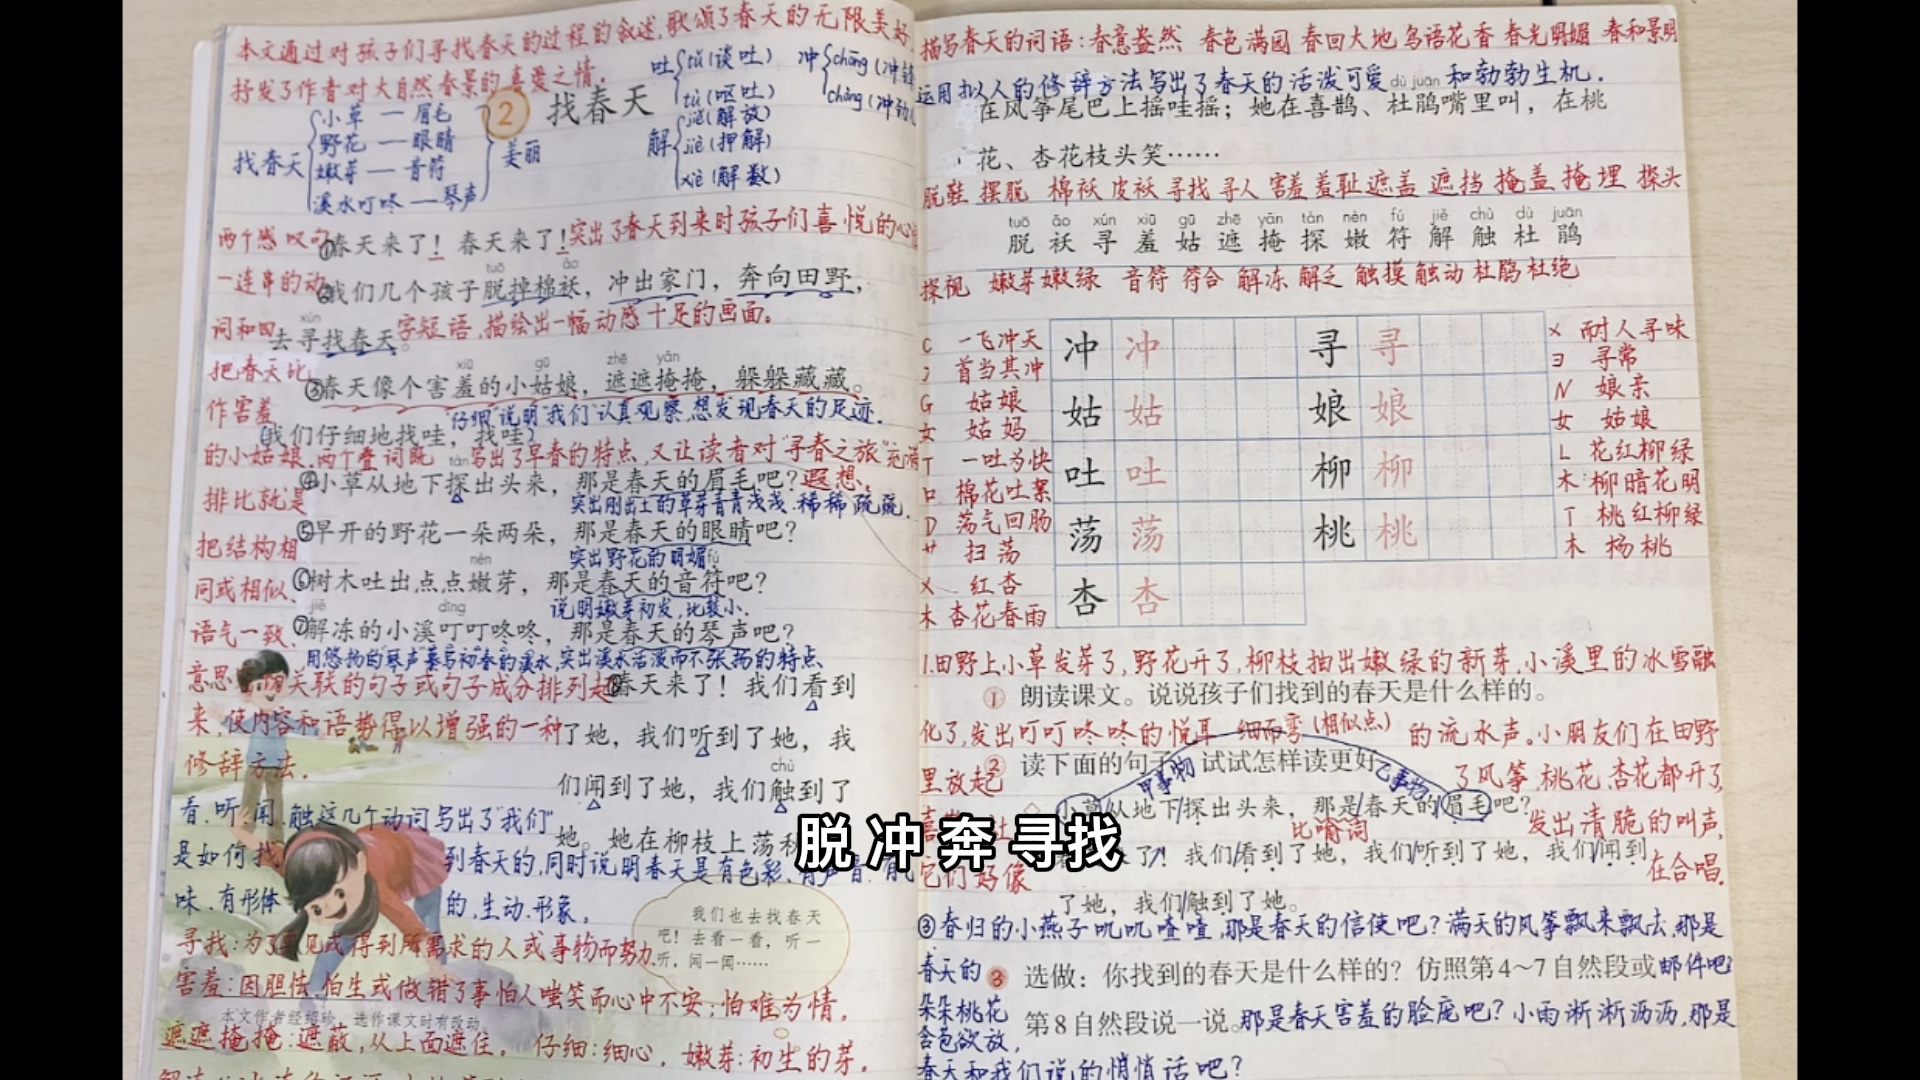 本文通过对孩子们寻找春天的过程的叙述,歌颂了春天的无限美好,
抒发了作者对大自然春景的喜爱之情。
2 找春天
找春天
小草 — 眉毛
野花 — 眼睛
嫩芽 — 音符
溪水叮咚 — 琴声
美丽
吐
tǔ(谈吐)
tù(呕吐)
冲
chōng(冲锋
chòng(冲劲儿
解
jiě(解放)
jiè(押解)
xiè(解数)
两个感叹句
①春天来了!春天来了!
突出了春天到来时孩子们喜悦的心情
tuō ǎo
一连串的动
②我们几个孩子脱掉棉袄,冲出家门,奔向田野,
xún
词和四字短语,描绘出一幅动感十足的画面。
去寻找春天。
xiū gū zhē yǎn
把春天比
③春天像个害羞的小姑娘,遮遮掩掩,躲躲藏藏。
作害羞
"仔细"说明"我们"认真观察,想发现春天的足迹.
我们仔细地找哇,找哇。
的小姑娘.两个叠词既写出了早春的特点,又让读者对"寻春之旅"充满
遐想。
tàn
④小草从地下探出头来,那是春天的眉毛吧?
排比就是
突出刚出土的草芽青青浅浅.稀稀疏疏.
⑤早开的野花一朵两朵,那是春天的眼睛吧?
把结构相
突出野花的明媚
nèn fú
⑥树木吐出点点嫩芽,那是春天的音符吧?
同或相似、
说明嫩芽初发,比较小.
jiě dīng
语气一致、
⑦解冻的小溪叮叮咚咚,那是春天的琴声吧?
用悠扬的琴声摹写初春的溪水,突出溪水活泼而不张扬的特点
意思密切关联的句子或句子成分排列起
⑧春天来了!我们看到
来,使内容和语势得以增强的一种
了她,我们听到了她,我
修辞方法.
chù
们闻到了她,我们触到了
看、听、闻、触这几个动词写出了"我们"
她。她在柳枝上荡秋
是如何找到春天的,同时说明春天是有色彩、有声音、有气
味、有形体的,生动.形象。
我们也去找春天
吧!去看一看,听一
听,闻一闻……
寻找:为了要见或得到所需求的人或事物而努力.
害羞:因胆怯、怕生或做错了事怕人嗤笑而心中不安;怕难为情。
本文作者经绍珍,选作课文时有改动。
遮遮掩掩:遮蔽,从上面遮住。仔细:细心,嫩芽:初生的芽。
描写春天的词语:春意盎然 春色满园 春回大地 鸟语花香 春光明媚 春和景明
运用拟人的修辞方法写出了春天的活泼可爱和勃勃生机.
dù juān
在风筝尾巴上摇哇摇;她在喜鹊、杜鹃嘴里叫,在桃
花、杏花枝头笑……
脱鞋 摆脱 棉袄 皮袄 寻找 寻人 害羞 羞耻 遮盖 遮挡 掩盖 掩埋 探头
tuō ǎo xún xiū gū zhē yǎn tàn nèn fú jiě chù dù juān
脱 袄 寻 羞 姑 遮 掩 探 嫩 符 解 触 杜 鹃
探视 嫩芽 嫩绿 音符 符合 解冻 解乏 触摸 触动 杜鹃 杜绝
C 一飞冲天
冫 首当其冲
冲 冲
寻 寻
X 耐人寻味
彐 寻常
G 姑娘
女 姑妈
姑 姑
娘 娘
N 娘亲
女 姑娘
T 一吐为快
口 棉花吐絮
吐 吐
柳 柳
L 花红柳绿
木 柳暗花明
D 荡气回肠
艹 扫荡
荡 荡
桃 桃
T 桃红柳绿
木 杨桃
X 红杏
木 杏花春雨
杏 杏
1.田野上小草发芽了,野花开了,柳枝抽出嫩绿的新芽,小溪里的冰雪融
① 朗读课文。说说孩子们找到的春天是什么样的。
化了,发出叮叮咚咚的悦耳的流水声。小朋友们在田野
细而弯(相似点)
② 读下面的句子,试试怎样读更好
里放起了风筝.桃花、杏花都开了,
甲事物 乙事物
小草从地下/探出头来,那是/春天的/眉毛吧?
比喻词
发出清脆的叫声,
来了!我们/看到了她,我们/听到了她,我们/闻到
它们好像在合唱.
了她,我们/触到了她。
③春归的小燕子叽叽喳喳,那是春天的信使吧?满天的风筝飘来飘去,那是
春天的邮件吧?
3 选做:你找到的春天是什么样的?仿照第4~7自然段或
朵朵桃花
第8自然段说一说。
那是春天害羞的脸庞吧?小雨淅淅沥沥,那是
含苞欲放,
春天和我们说的悄悄话吧?
脱 冲 奔 寻找